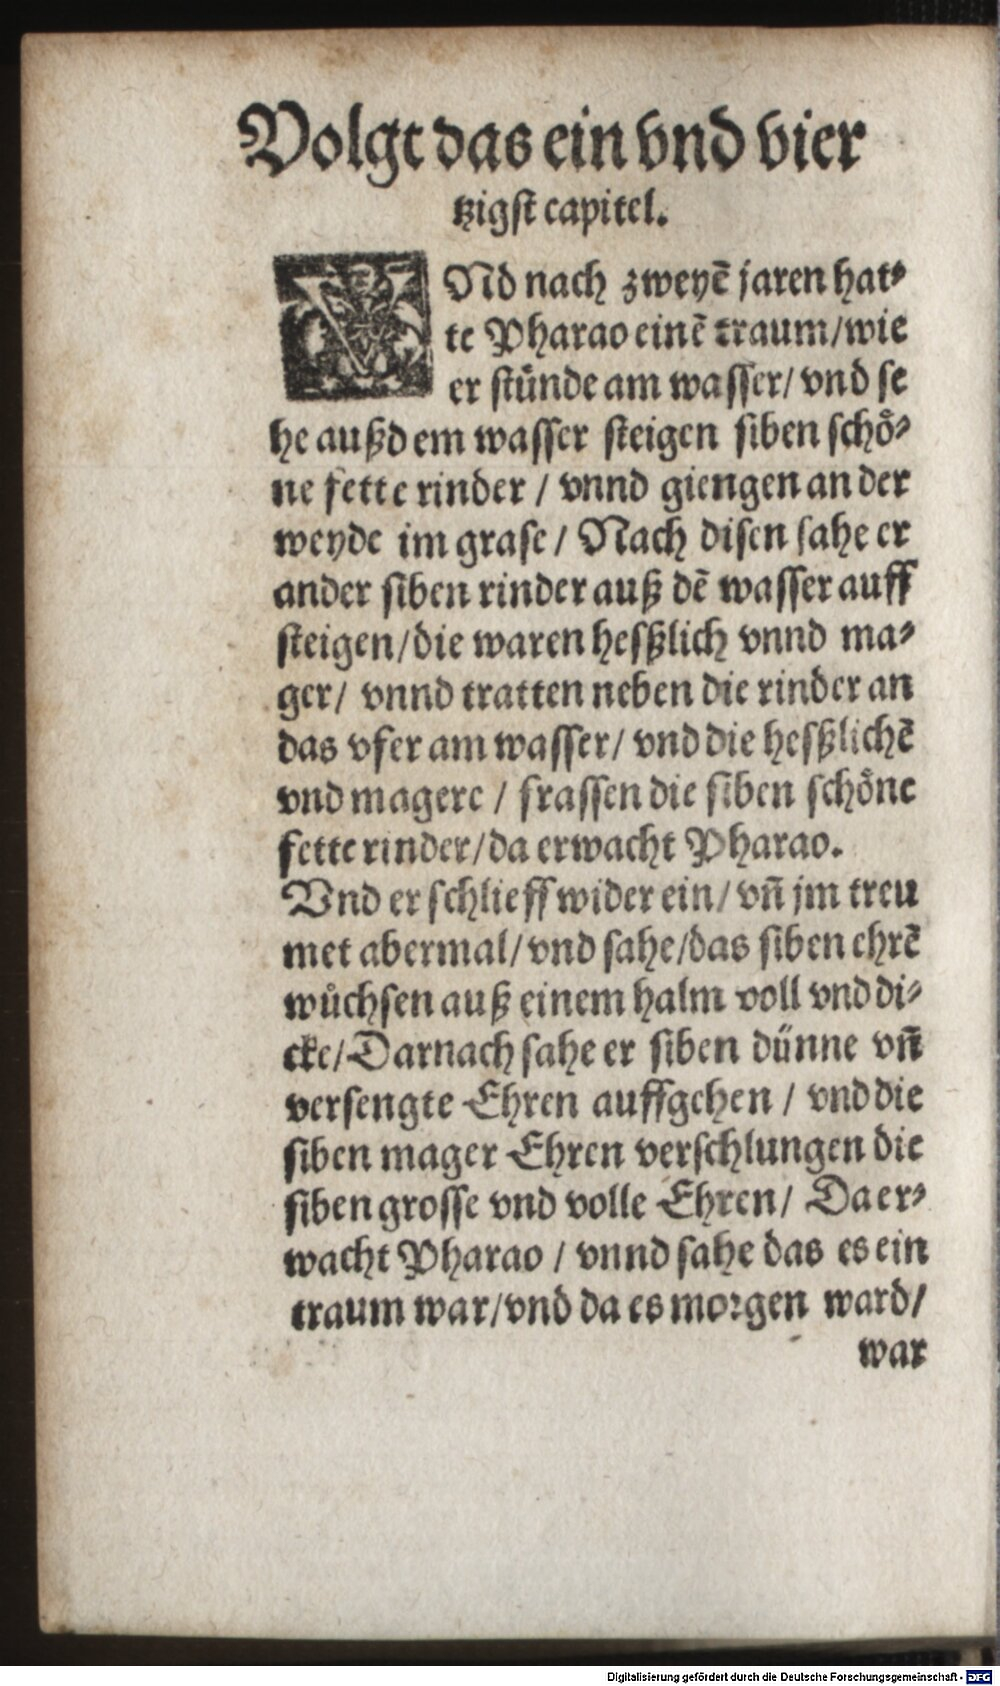 Volgt das ein vnd vier
tzigst capitel.
VNd nach zweyē jaren hat⸗
te Pharao einē traum/wie
er stünde am wasser/ vnd se
he außdem wasser steigen siben schoͤ⸗
ne fette rinder / vnnd giengen an der
weyde im grase / Nach disen sahe er
ander siben rinder auß dē wasser auff
steigen/die waren heßlich vnnd ma⸗
ger/ vnnd tratten neben die rinder an
das vfer am wasser/ vnd die heßlichē
vnd magere / frassen die siben schoͤne
fette rinder/da erwacht Pharao.
Vnd er schlieff wider ein/ vn̄ jm treu
met abermal/vnd sahe/das siben ehrē
wuͤchsen auß einem halm voll vnd di⸗
cke/Darnach sahe er siben dünne vn̄
versengte Ehren auffgehen / vnd die
siben mager Ehren verschlungen die
siben grosse vnd volle Ehren/ Da er⸗
wacht Pharao / vnnd sahe das es ein
traum war/vnd da es morgen ward/
war
Digitalisierung gefördert durch die Deutsche Forschungsgemeinschaft - DFG